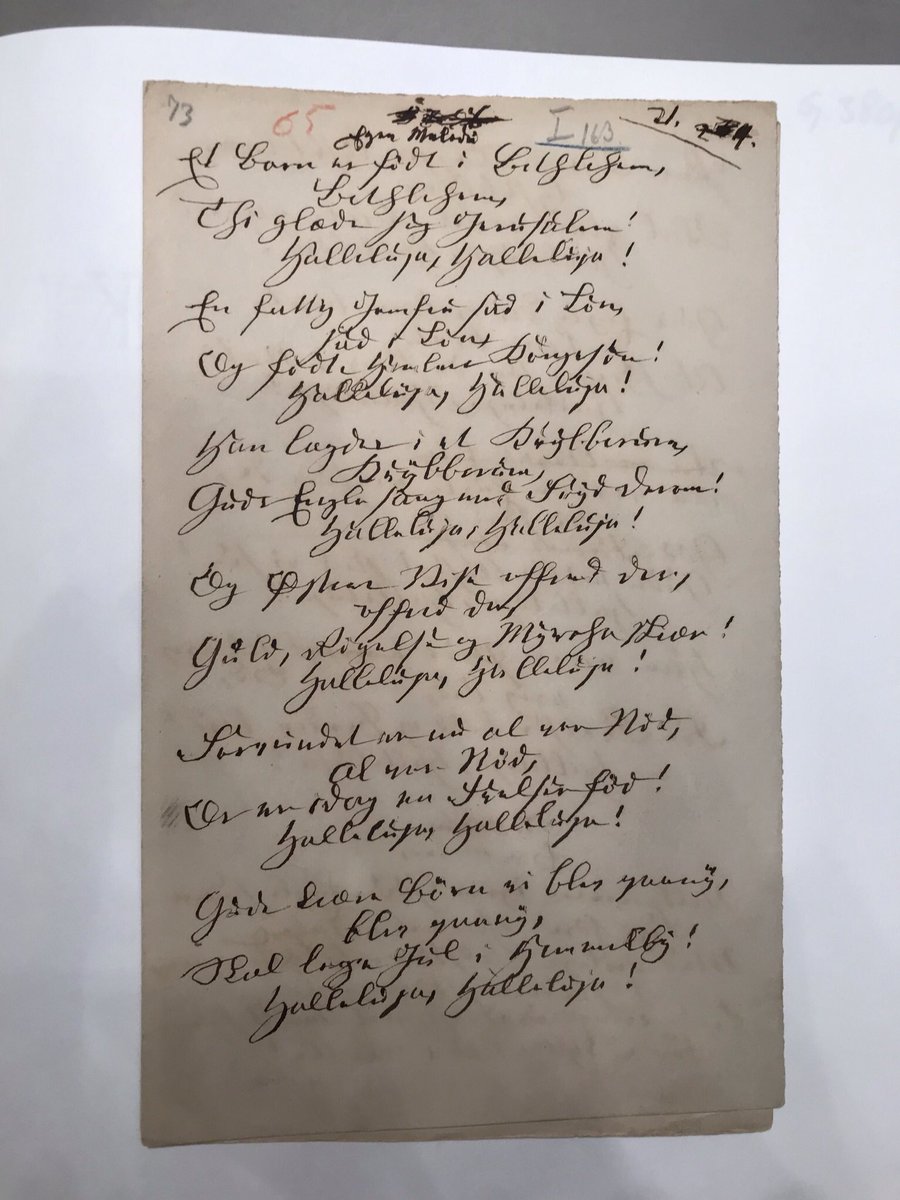 73 65 I 163 21.
Egen Melodi
Et Barn er födt i Bethlehem,
Bethlehem,
Thi glæde sig Jerusalem!
Halleluja, Halleluja!
En fattig Jomfru sad i Lön,
sad i Lön,
Og födte Himlens Kongesön!
Halleluja, Halleluja!
Han lagdes i et Krybberum,
Krybberum,
Guds Engle sang med Fryd derom!
Halleluja, Halleluja!
Og Østens Vise offred der,
offred der,
Guld, Rögelse og Myrrha skiær!
Halleluja, Halleluja!
Forvundet er nu al vor Nöd,
al vor Nöd,
Os er idag en Frelser föd!
Halleluja, Halleluja!
Guds kiære Börn vi blev paany,
blev paany,
Skal lege Jul i Himmelby!
Halleluja, Halleluja!